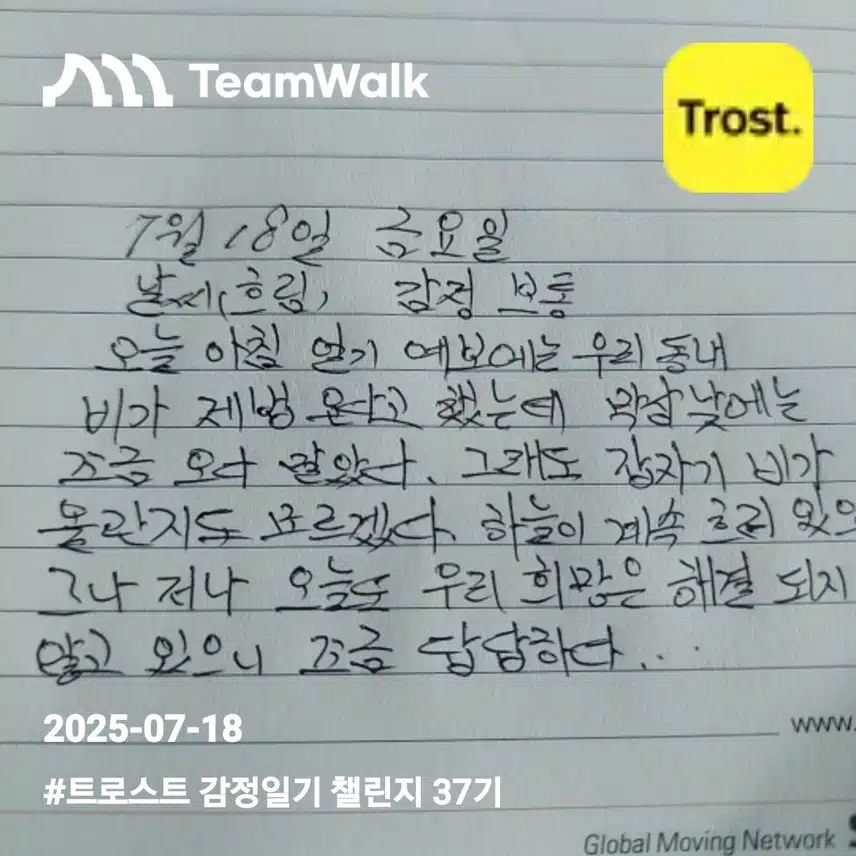 TeamWalk
Trost.
7월 18일 금요일
날씨(흐림) 감정 보통
오늘 아침 일기 예보에는 우리 동내
비가 제법 온다고 했는데 막상 낮에는
조금 오다 말았다. 그래도 갑자기 비가
올란지도 모르겠다. 하늘이 계속 흐려 있으
그나 저나 오늘도 우리 희망은 해결 되지
않고 있으니 조금 답답하다...
2025-07-18
www.
#트로스트 감정일기 챌린지 37기
Global Moving Network